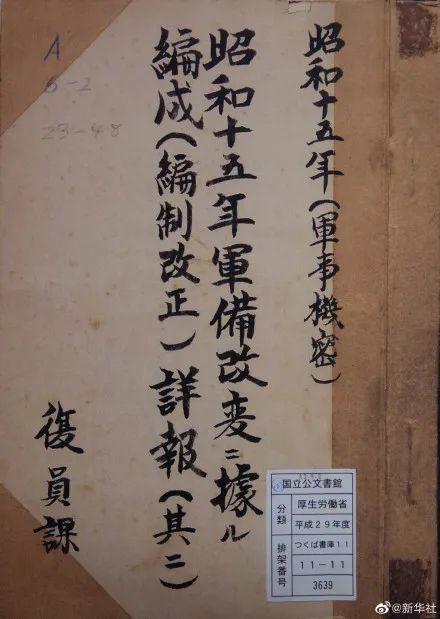 昭和十五年（軍事機密）
昭和十五年軍備改変ニ據ル
編成（編制改正）詳報（其二）
復員課
A
6-2
23-48
国立公文書館
分類
厚生労働省
平成29年度
排架番号
つくば書庫11
11-11
3639
@新华社